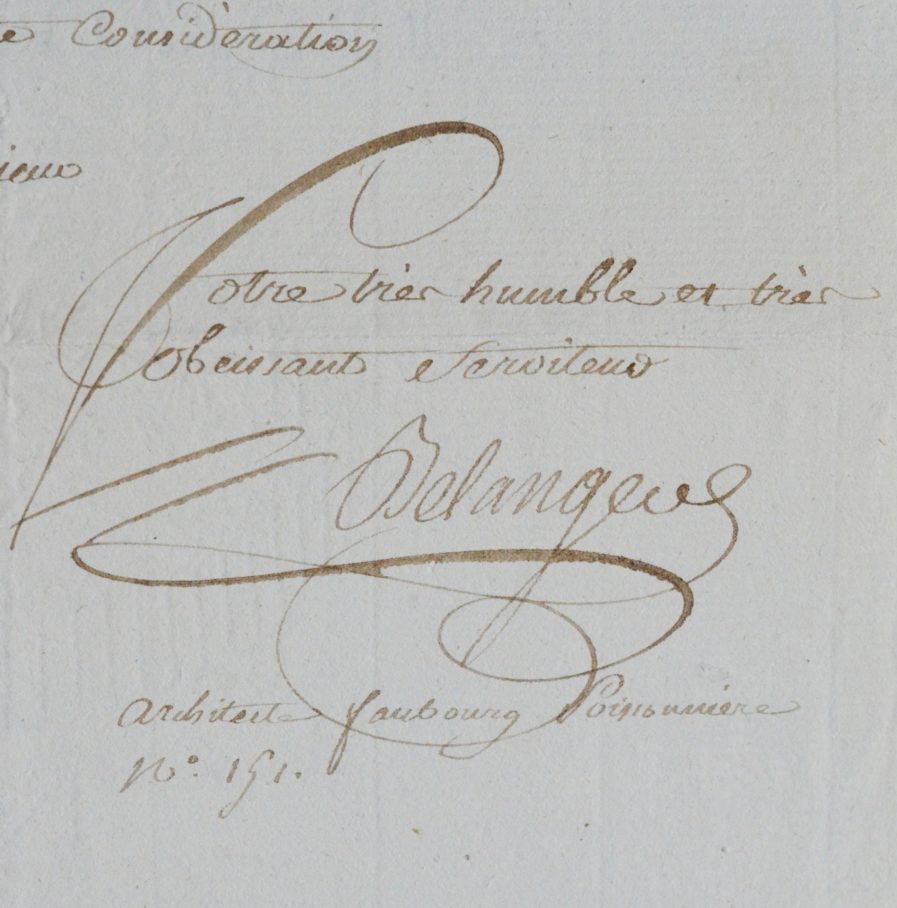 Considération
Votre très humble et très
obeissant Serviteur
Belanger
architecte faubourg Poissonniere
N°. 151.